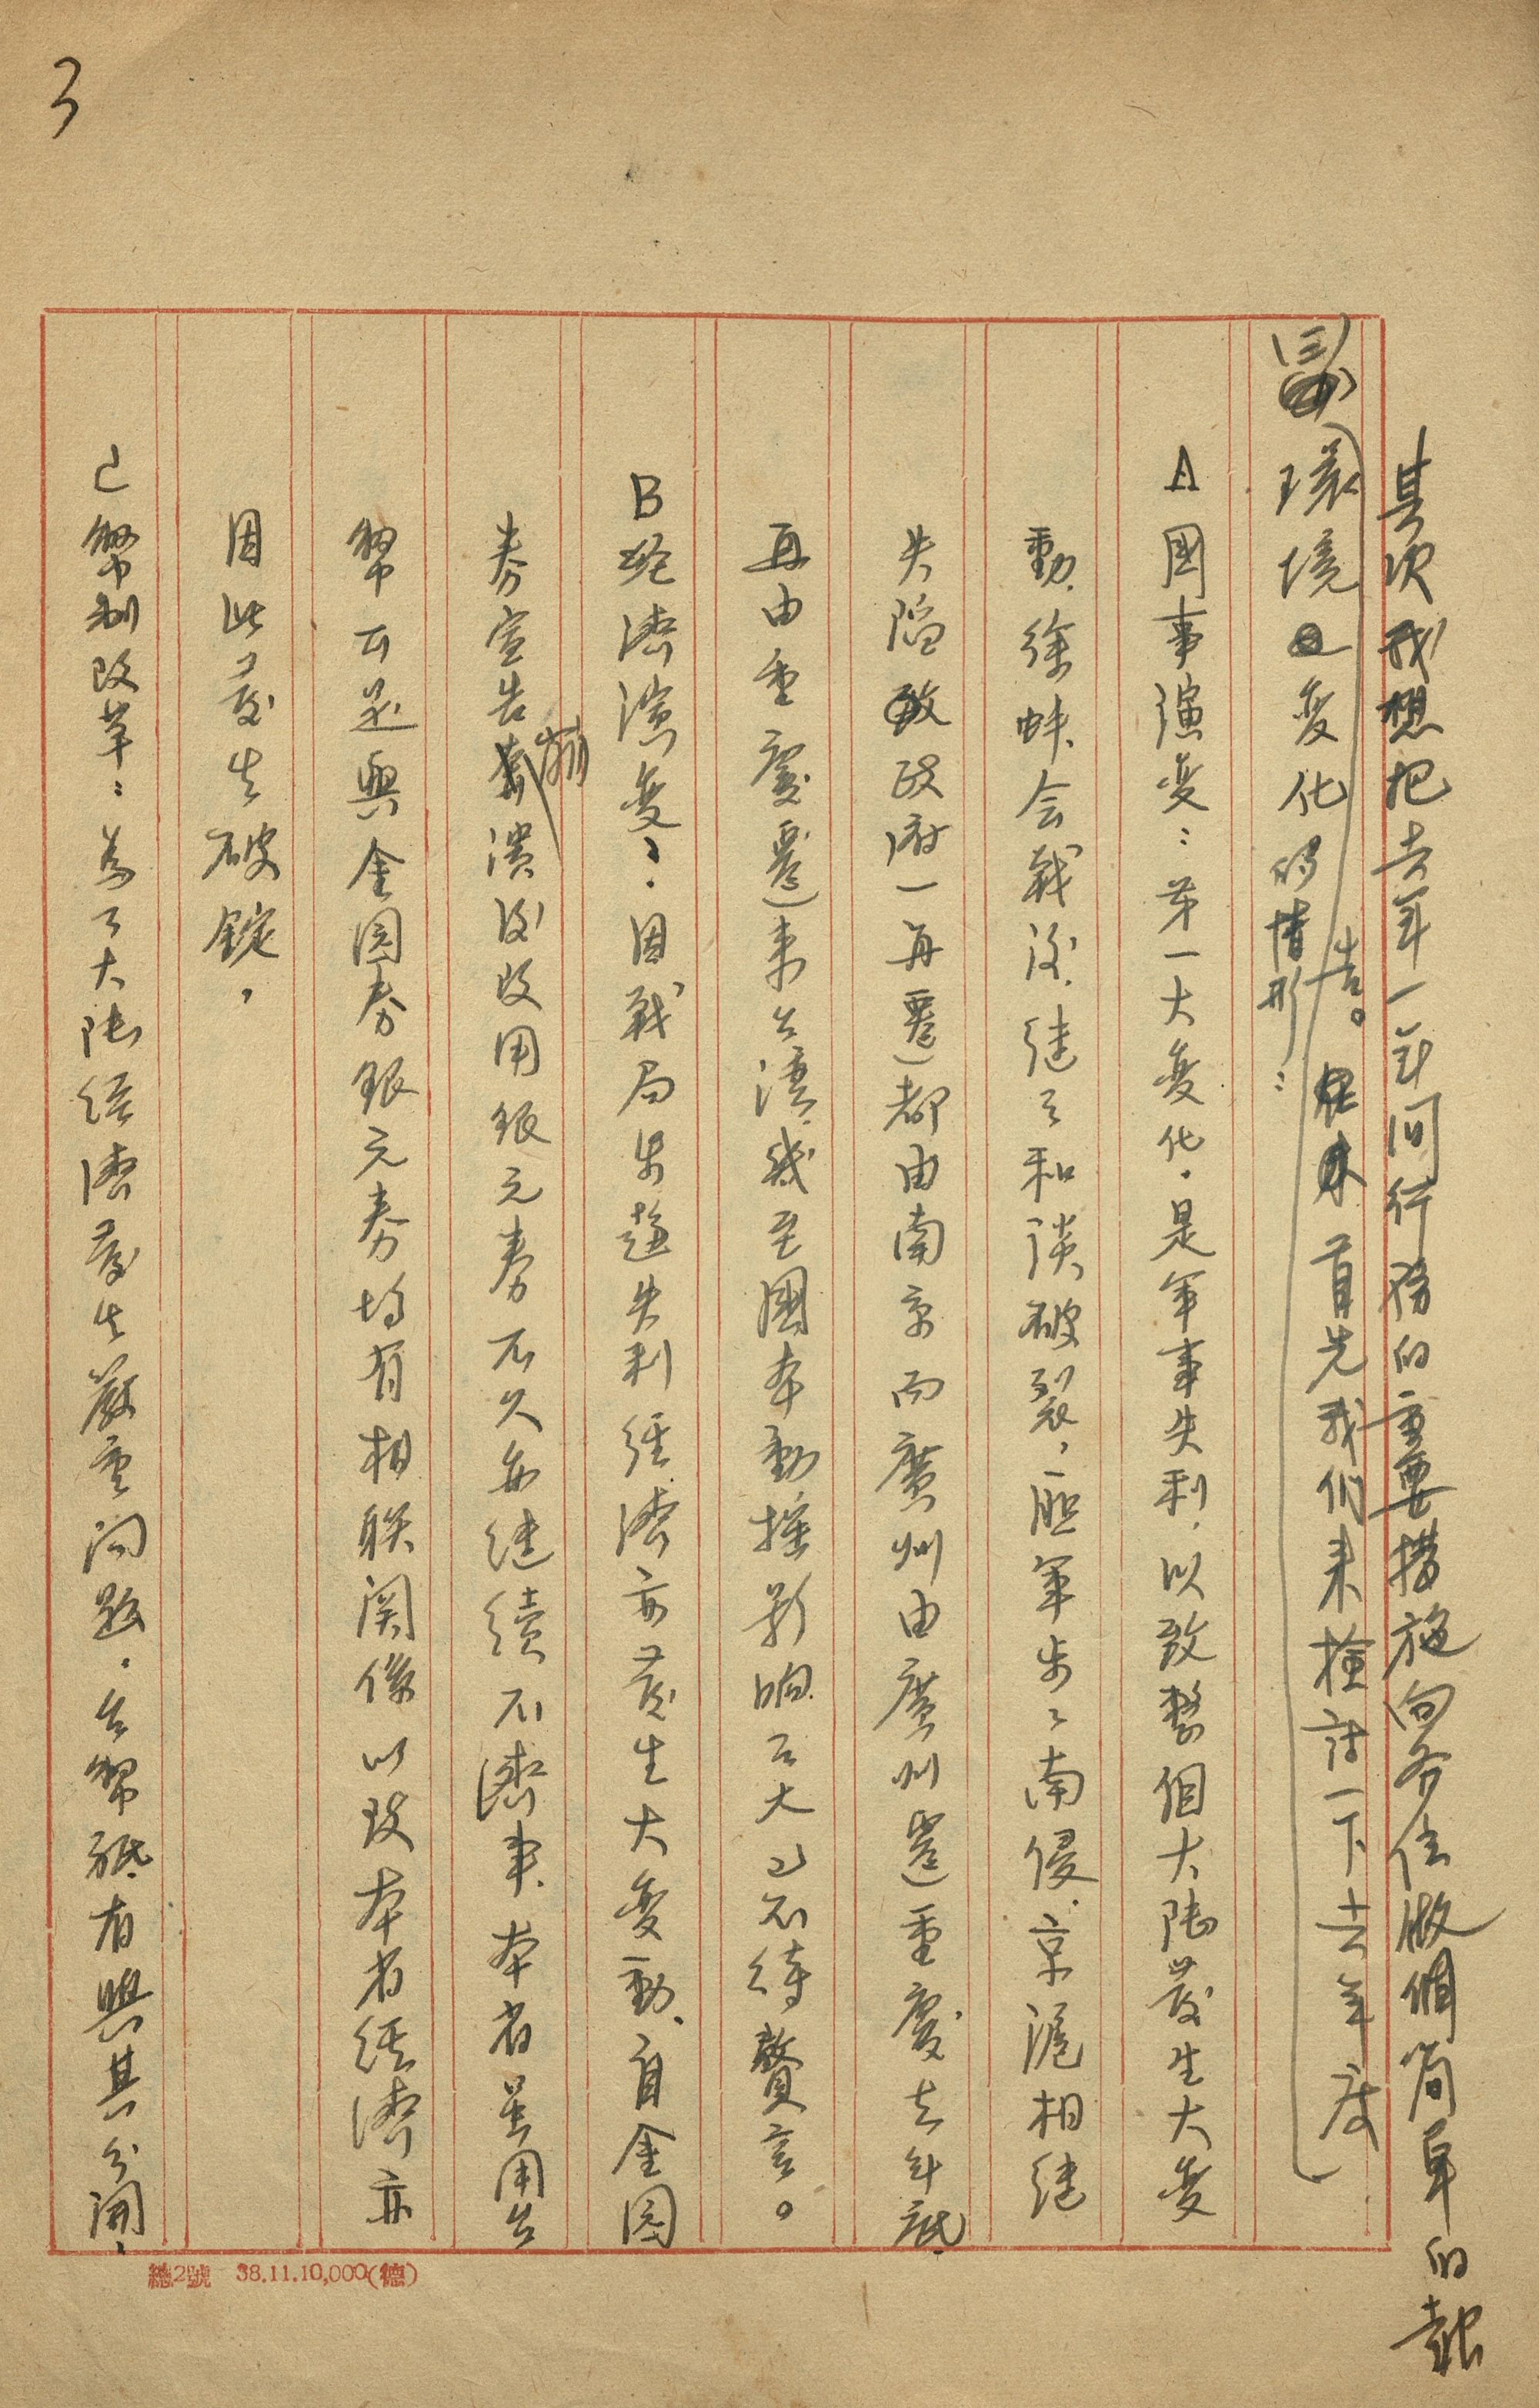 3
其次我想把去年一年间行務的重要措施向各位做個简单的報
告。首先我们来檢討一下去年度
(三)環境之变化的情形：
A國事演变：第一大变化，是軍事失利，以致整個大陆發生大变
動，徐蚌会戰後，继之和谈破裂，匪軍步々南侵，京滬相继
失陷政府一再遷都由南京而廣州由廣州遷重慶去年底，
再由重慶遷来台湾，幾至國本動摇影响之大已不待贅言。
B経濟演变：因戰局步趨失利経濟亦發生大变動，自金圆
券宣告崩潰後改用銀元券不久亦继續不濟事，本省虽用台
幣可是與金圆券銀元券均有相联関係以致本省経濟亦
因此發生破錠，
C幣制改革：为了大陆経濟發生嚴重问题，台幣祗有與其分開，
總2號 38.11.10,000(德)